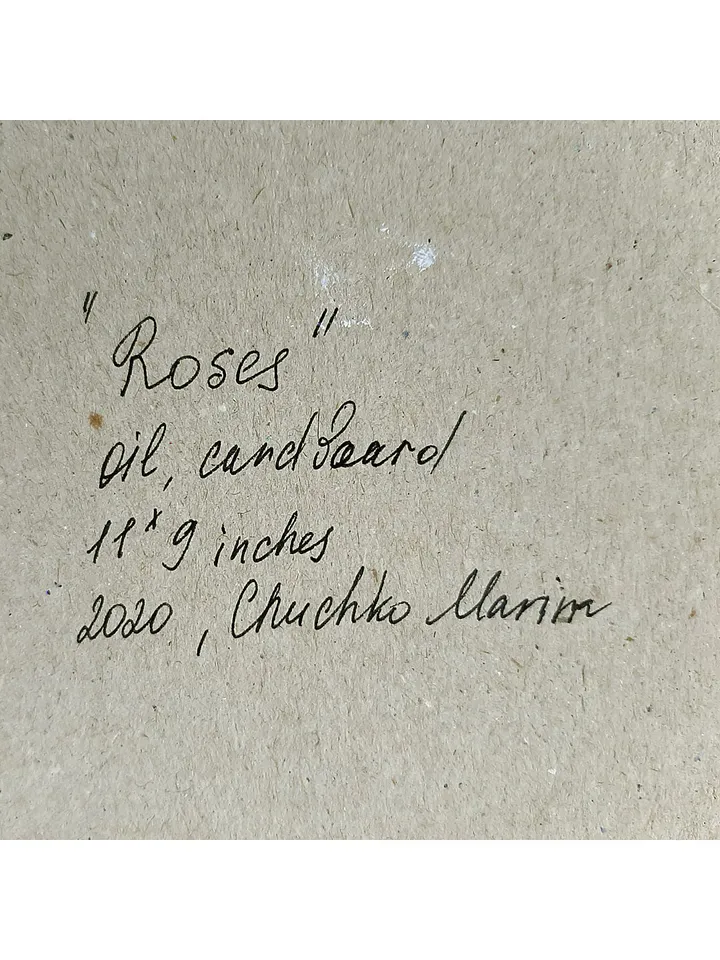 "Roses"
oil, cardboard
11 x 9 inches
2020, Chuchko Marina